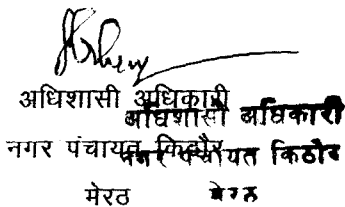 अधिशासी अधिकारी अधिशासी अधिकारी
नगर पंचायत किठौर नगर पंचायत किठौर
मेरठ मेरठ